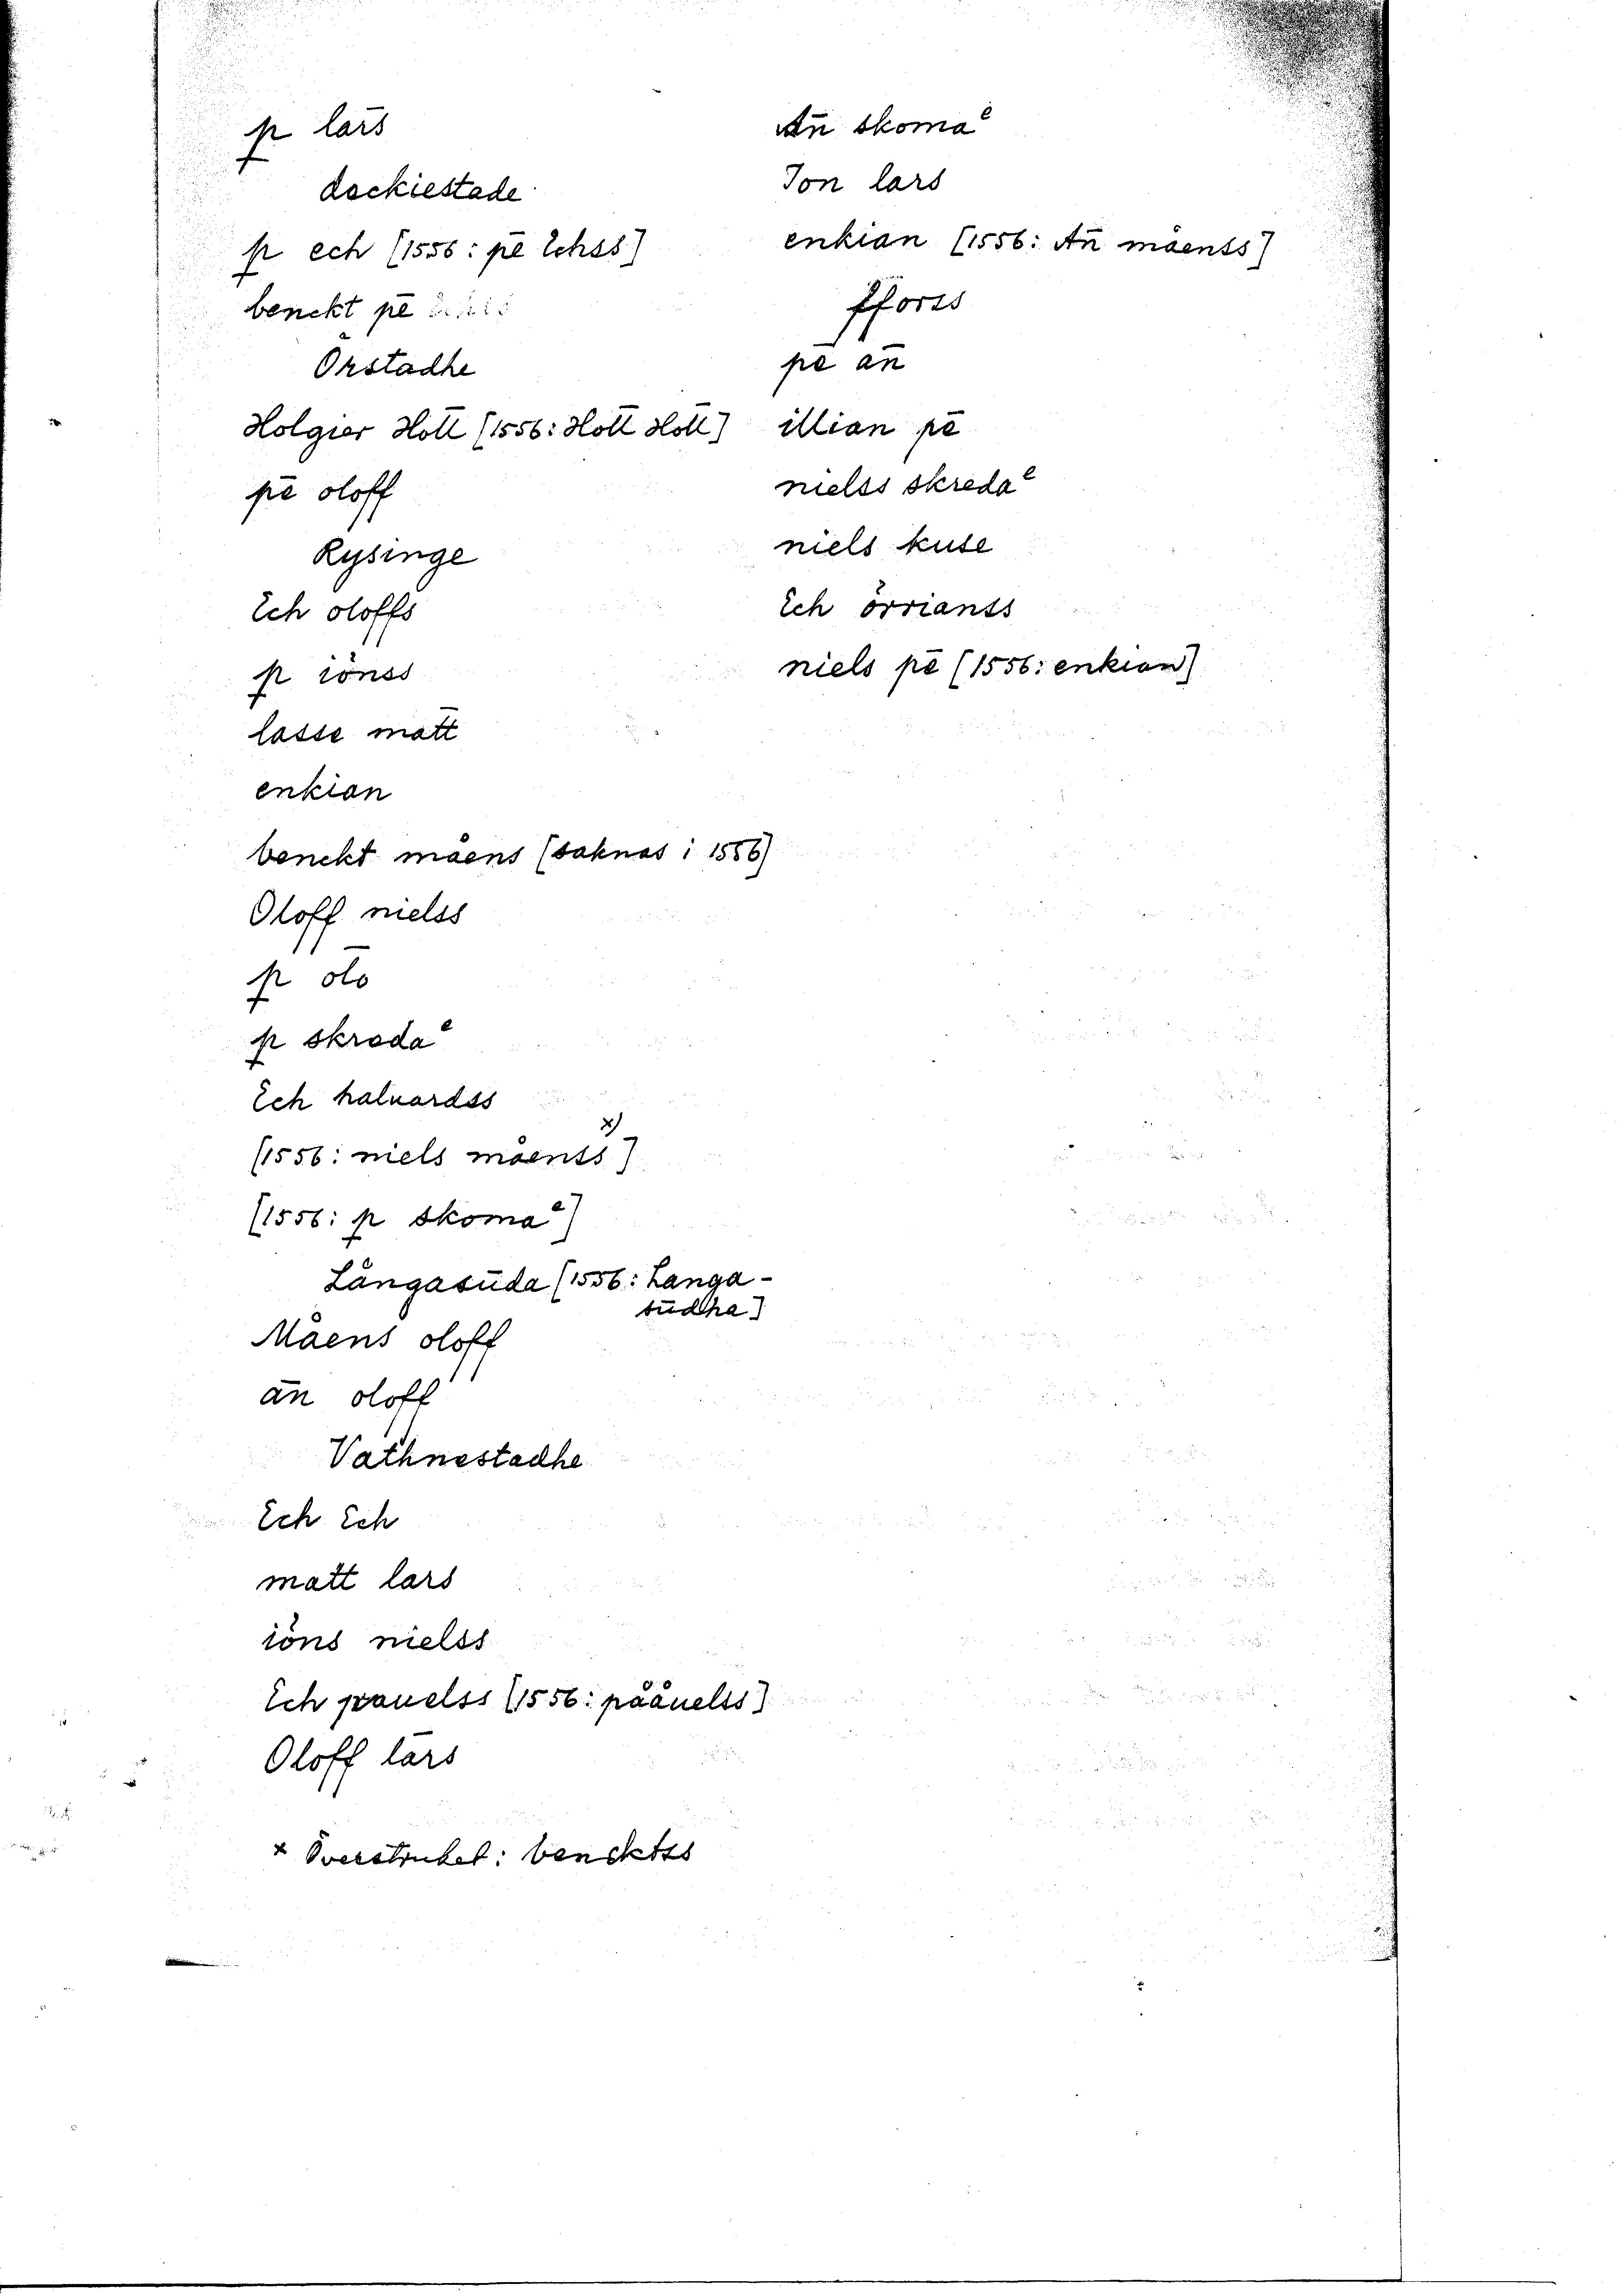 ꝑ lārs
dackiestade
ꝑ ech [1556: pē Echss]
benckt pē
Örstadhe
Holgier Holl [1556: Holl Holl]
pē oloff
Rysinge
Ech oloffs
ꝑ iönss
lasse matt
enkian
benckt måens [saknas i 1556]
Oloff nielss
ꝑ olo
ꝑ skradaᵉ
Ech haluardss
[1556: niels måenss x)]
[1556: ꝑ skomaᵉ]
Långasūda [1556: Langa-
sūdha]
Måens oloff
ān oloff
Vathnestadhe
Ech Ech
matt lars
iöns nielss
Ech pauelss [1556: pååuelss]
Oloff lārs
x Överstruket: bencktss
An̄ skomaᵉ
Jon lars
enkian [1556: An̄ måenss]
fforss
pē an̄
illian pē
nielss skredaᵉ
niels kuse
Ech örrianss
niels pē [1556: enkian]